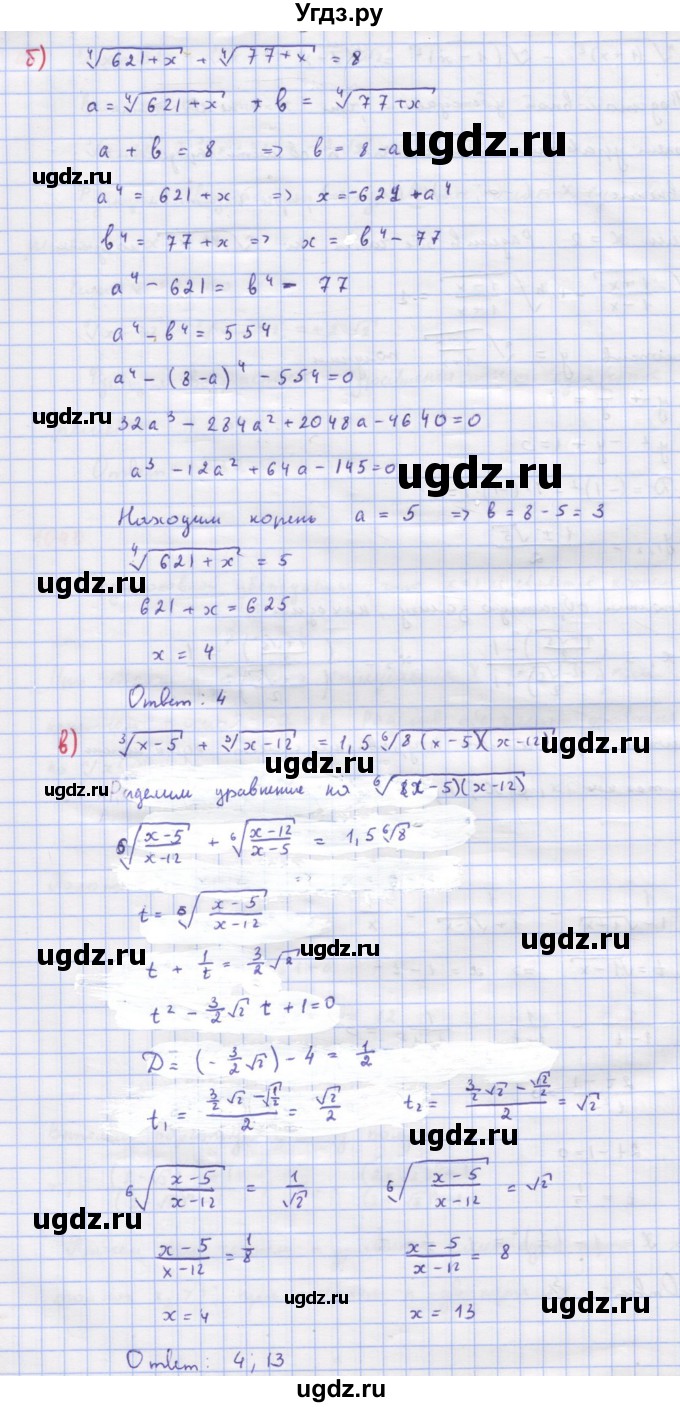 Угдз.ру
б) ⁴√(621+x) + ⁴√(77+x) = 8
a = ⁴√(621+x) , b = ⁴√(77+x)
ugdz.ru
a + b = 8 => b = 8-a
ugdz.ru
a⁴ = 621+x => x = -621+a⁴
b⁴ = 77+x => x = b⁴ - 77
a⁴ - 621 = b⁴ - 77
a⁴ - b⁴ = 554
a⁴ - (8-a)⁴ - 554 = 0
ugdz.ru
32a³ - 284a² + 2048a - 4640 = 0
a³ - 12a² + 64a - 145 = 0
ugdz.ru
Находим корень a = 5 => b = 8-5 = 3
⁴√(621+x) = 5
ugdz.ru
621+x = 625
x = 4
Ответ: 4
ugdz.ru
в) ³√(x-5) + ³√(x-12) = 1,5 ⁶√(8(x-5)(x-12))
ugdz.ru
ugdz.ru
Разделим уравнение на ⁶√((x-5)(x-12))
⁶√((x-5)/(x-12)) + ⁶√((x-12)/(x-5)) = 1,5 ⁶√8
t = ⁶√((x-5)/(x-12))
ugdz.ru
ugdz.ru
ugdz.ru
t + 1/t = 3/2 √2
t² - 3/2 √2 t + 1 = 0
D = (-3/2 √2) - 4 = 1/2
t₁ = (3/2 √2 - √(1/2))/2 = √2/2 t₂ = (3/2 √2 - √2/2)/2 = √2
ugdz.ru
⁶√((x-5)/(x-12)) = 1/√2 ⁶√((x-5)/(x-12)) = √2
ugdz.ru
ugdz.ru
(x-5)/(x-12) = 1/8 (x-5)/(x-12) = 8
ugdz.ru
ugdz.ru
x = 4 x = 13
Ответ: 4; 13
ugdz.ru